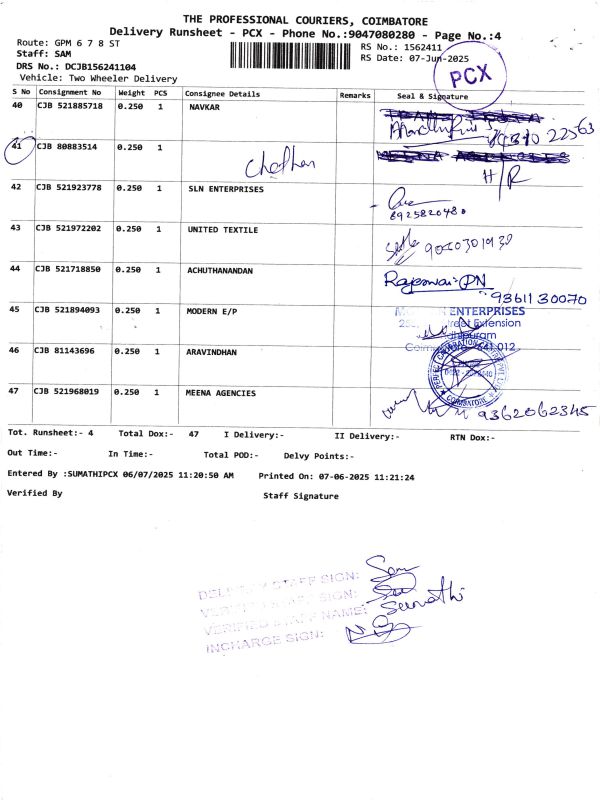 THE PROFESSIONAL COURIERS, COIMBATORE
Delivery Runsheet - PCX - Phone No.:9047080280 - Page No.:4
Route: GPM 6 7 8 ST
RS No.: 1562411
Staff: SAM
RS Date: 07-Jun-2025
DRS No.: DCJB156241104
PCX
Vehicle: Two Wheeler Delivery
S No Consignment No Weight PCS Consignee Details Remarks Seal & Signature
40 CJB 521885718 0.250 1 NAVKAR
41 CJB 80883514 0.250 1
Chethan
H/R
42 CJB 521923778 0.250 1 SLN ENTERPRISES
8925820480
43 CJB 521972202 0.250 1 UNITED TEXTILE
44 CJB 521718850 0.250 1 ACHUTHANANDAN
PN
9361130070
45 CJB 521894093 0.250 1 MODERN E/P
ENTERPRISES
Extension
46 CJB 81143696 0.250 1 ARAVINDHAN
641 012
COIMBATORE
47 CJB 521968019 0.250 1 MEENA AGENCIES
9362062345
Tot. Runsheet:- 4 Total Dox:- 47 I Delivery:- II Delivery:- RTN Dox:-
Out Time:- In Time:- Total POD:- Delvy Points:-
Entered By :SUMATHIPCX 06/07/2025 11:20:50 AM Printed On: 07-06-2025 11:21:24
Verified By Staff Signature
DELIVERY STAFF SIGN: Sam
VERIFIED STAFF SIGN:
VERIFIED STAFF NAME: Sumathi
INCHARGE SIGN: